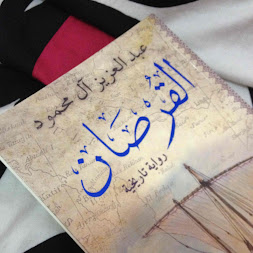 عبد العزيز آل محمود
القرصان
رواية تاريخية